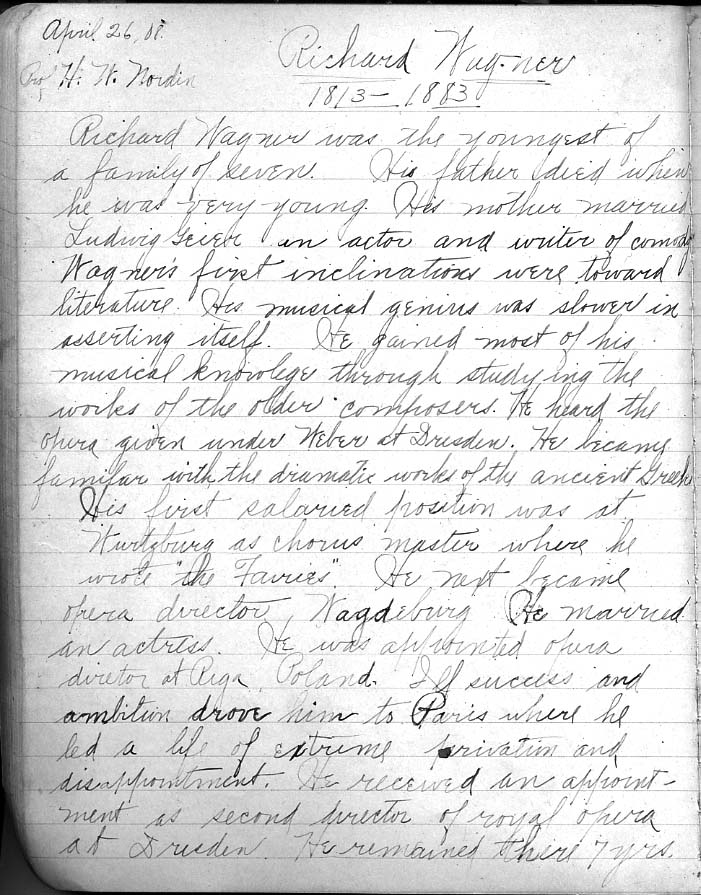 April 26, 08.
Prof H. W. Nordin
Richard Wagner
1813 - 1883.
Richard Wagner was the youngest of
a family of seven. His father died when
he was very young. His mother married
Ludwig Geier an actor and writer of comedy
Wagner's first inclinations were toward
literature. His musical genius was slower in
asserting itself. He gained most of his
musical knowlege through studying the
works of the older composers. He heard the
opera given under Weber at Dresden. He became
familar with the dramatic works of the ancient Greeks
His first salaried position was at
Wurtzburg as chorus master where he
wrote "the Fairies". He next became
opera director, Wagdeburg He married
an actress. He was appointed opera
diretor at Riga, Poland. Ill success and
ambition drove him to Paris where he
led a life of extreme privation and
disappointment. He received an appoint-
ment as second director of royal opera
at Dresden. He remained there 7 yrs.